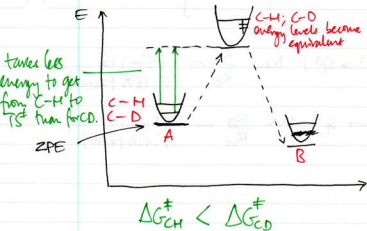 E
C-H; C-D
energy levels become
equivalent
‡
takes less
energy to get
from C-H to
TS‡ than for CD.
C-H
C-D
A
ZPE
B
ΔG‡CH < ΔG‡CD